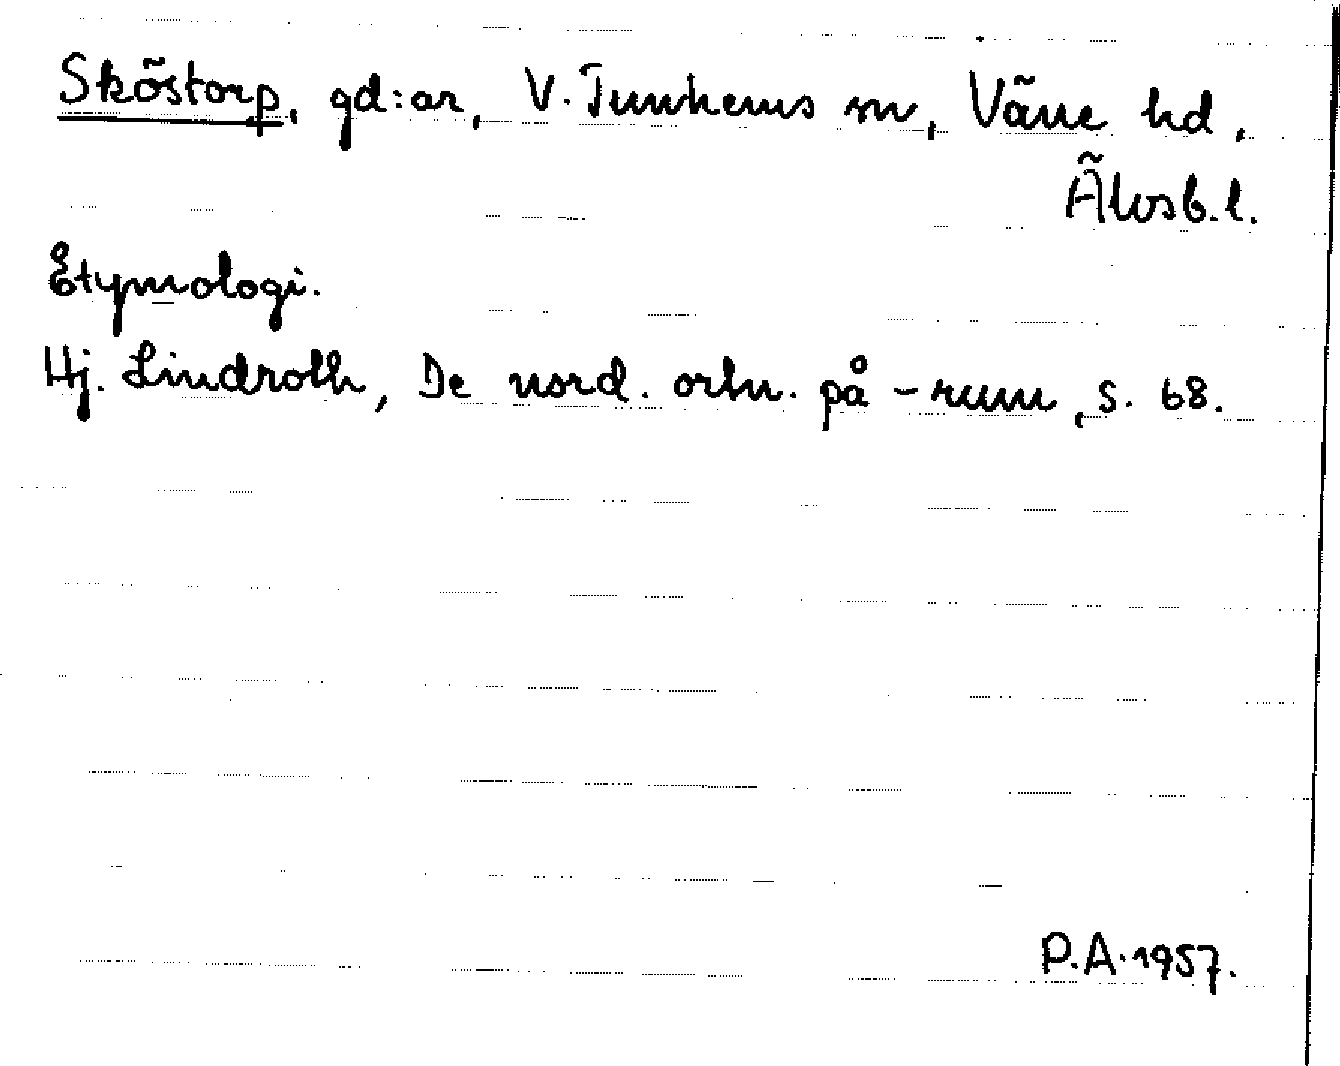 Sköstorp, gd:ar, V. Tunhems sn, Väne hd,
Älvsb. l.
Etymologi.
Hj. Lindroth, De nord. ortn. på -rum, s. 68.
P.A. 1957.